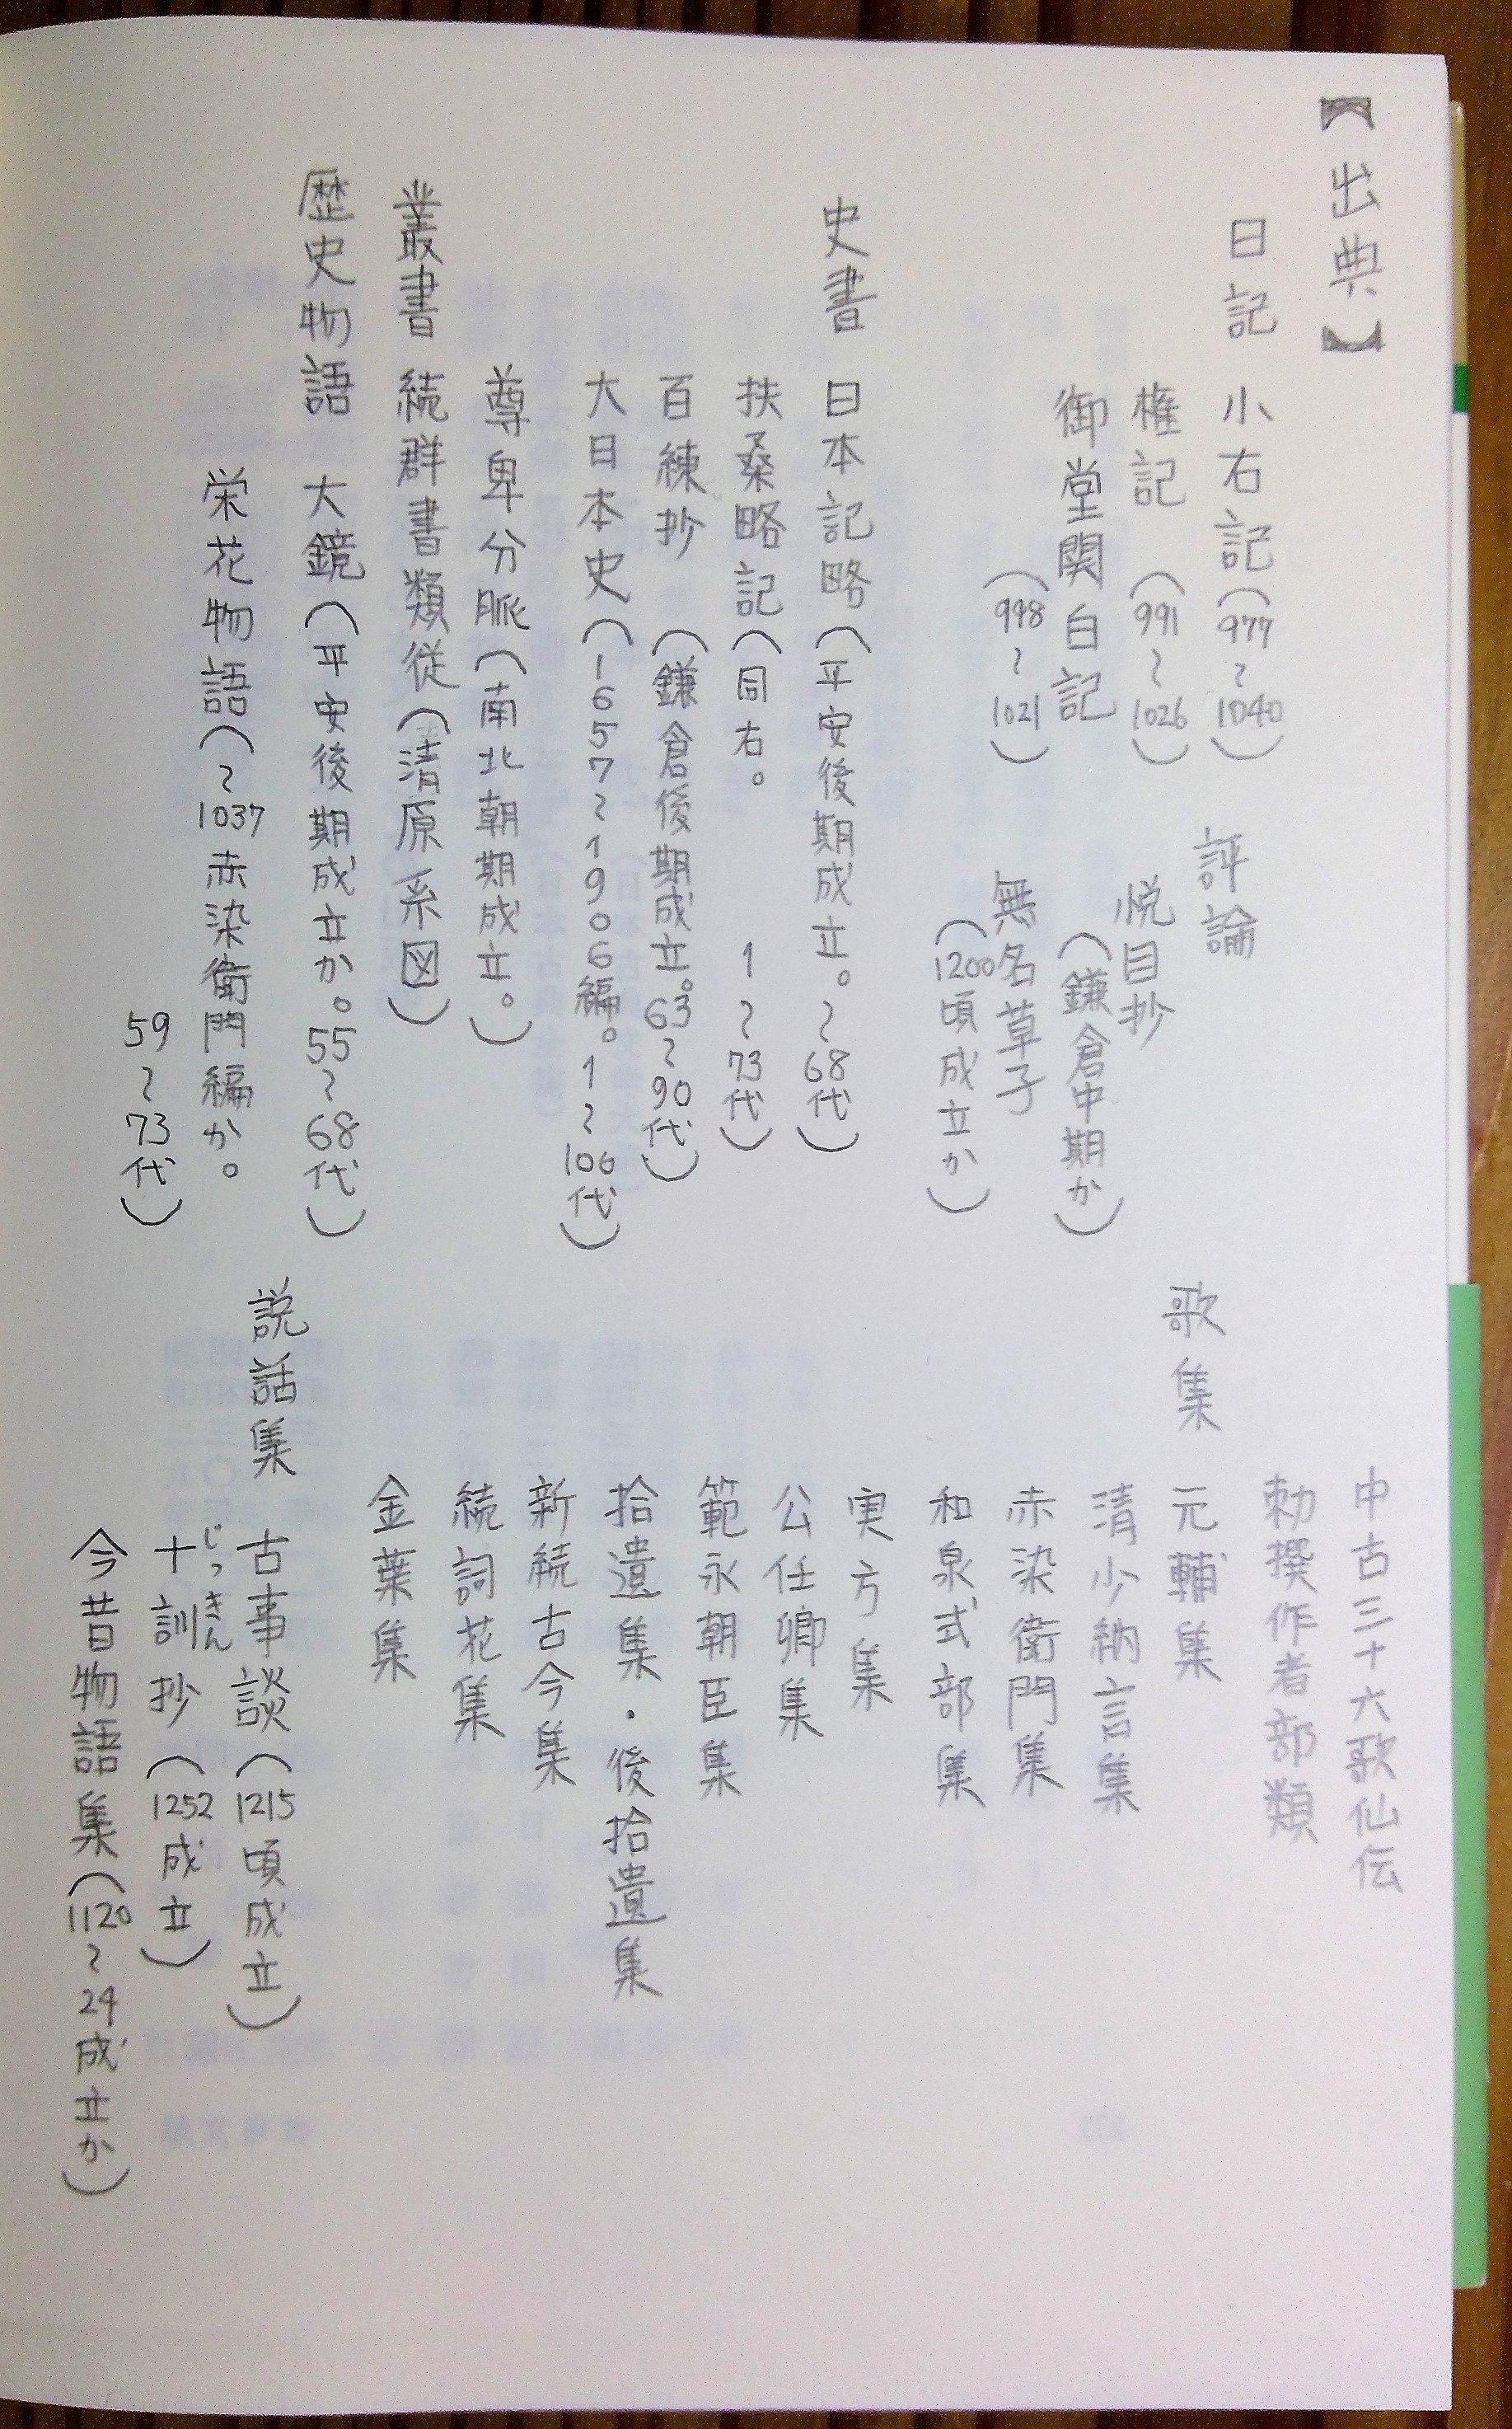 【出典】
日記
小右記(977〜1040)
権記(991〜1026)
御堂関白記
(998〜1021)
評論
悦目抄
(鎌倉中期か)
無名草子
(1200頃成立か)
史書
日本記略(平安後期成立。〜68代)
扶桑略記(同右。1〜73代)
百練抄(鎌倉後期成立。63〜90代)
大日本史(1657〜1906編。1〜100代)
尊卑分脈(南北朝期成立。)
叢書
続群書類従(清原系図)
歴史物語
大鏡(平安後期成立か。55〜68代)
栄花物語(〜1037赤染衛門編か。
59〜73代)
中古三十六歌仙伝
勅撰作者部類
歌集
元輔集
清少納言集
赤染衛門集
和泉式部集
実方集
公任卿集
範永朝臣集
拾遺集・後拾遺集
新続古今集
続詞花集
金葉集
説話集
古事談(1215頃成立)
じっきん
十訓抄(1252成立)
今昔物語集(1120〜24成立か)